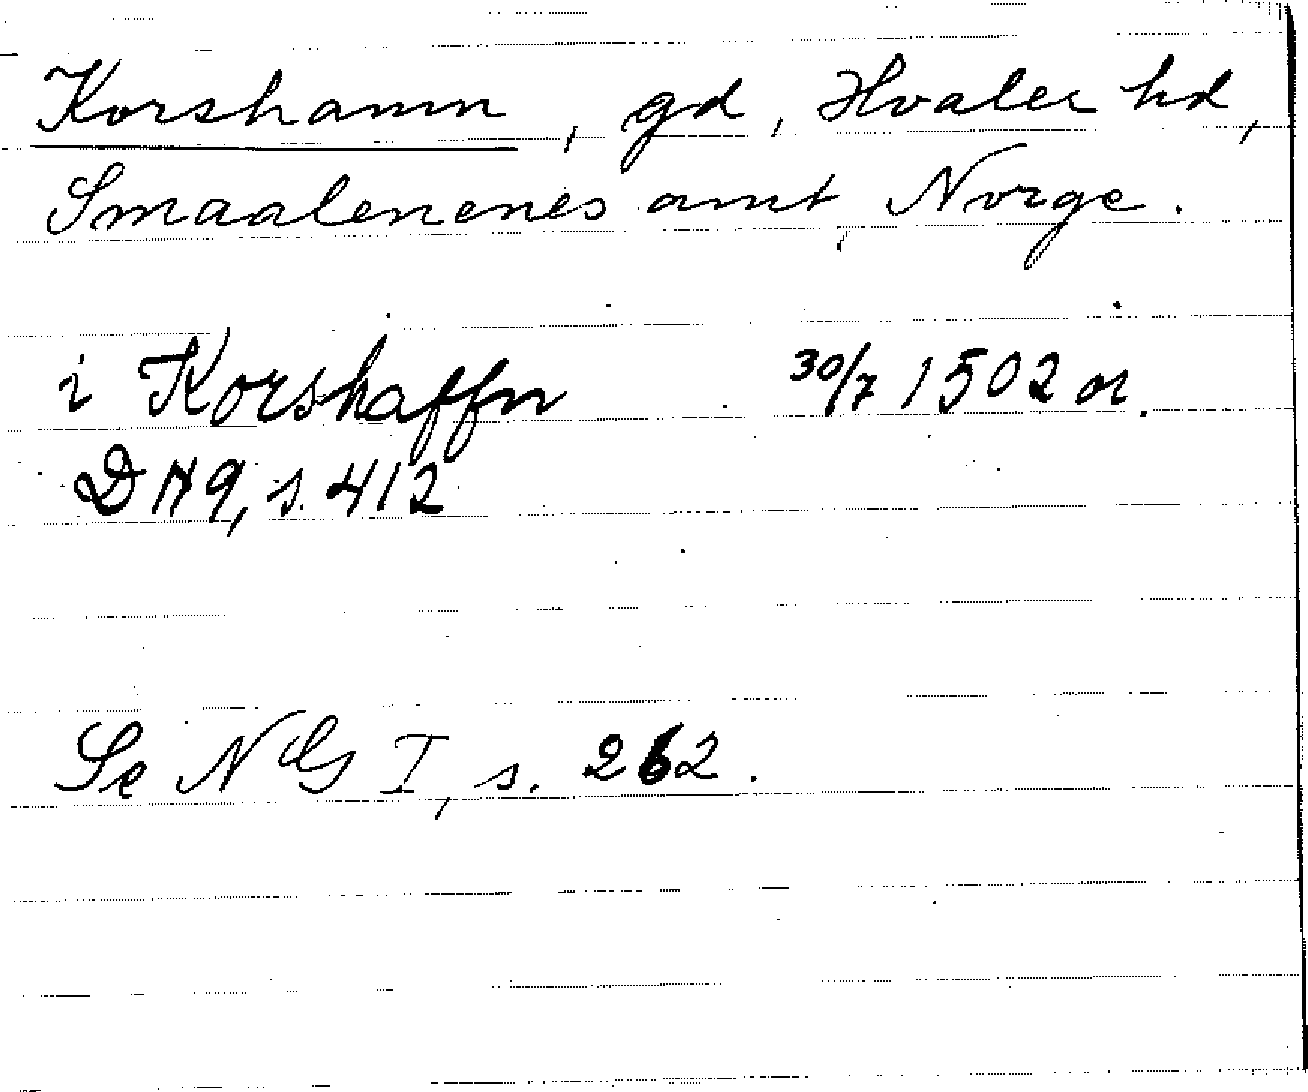 Korshamn, gd, Hvaler hd,
Smaalenenes amt, Norge.
i Korshaffn 30/7 1502 or.
DN 9, s. 412
Se NG I, s. 262.